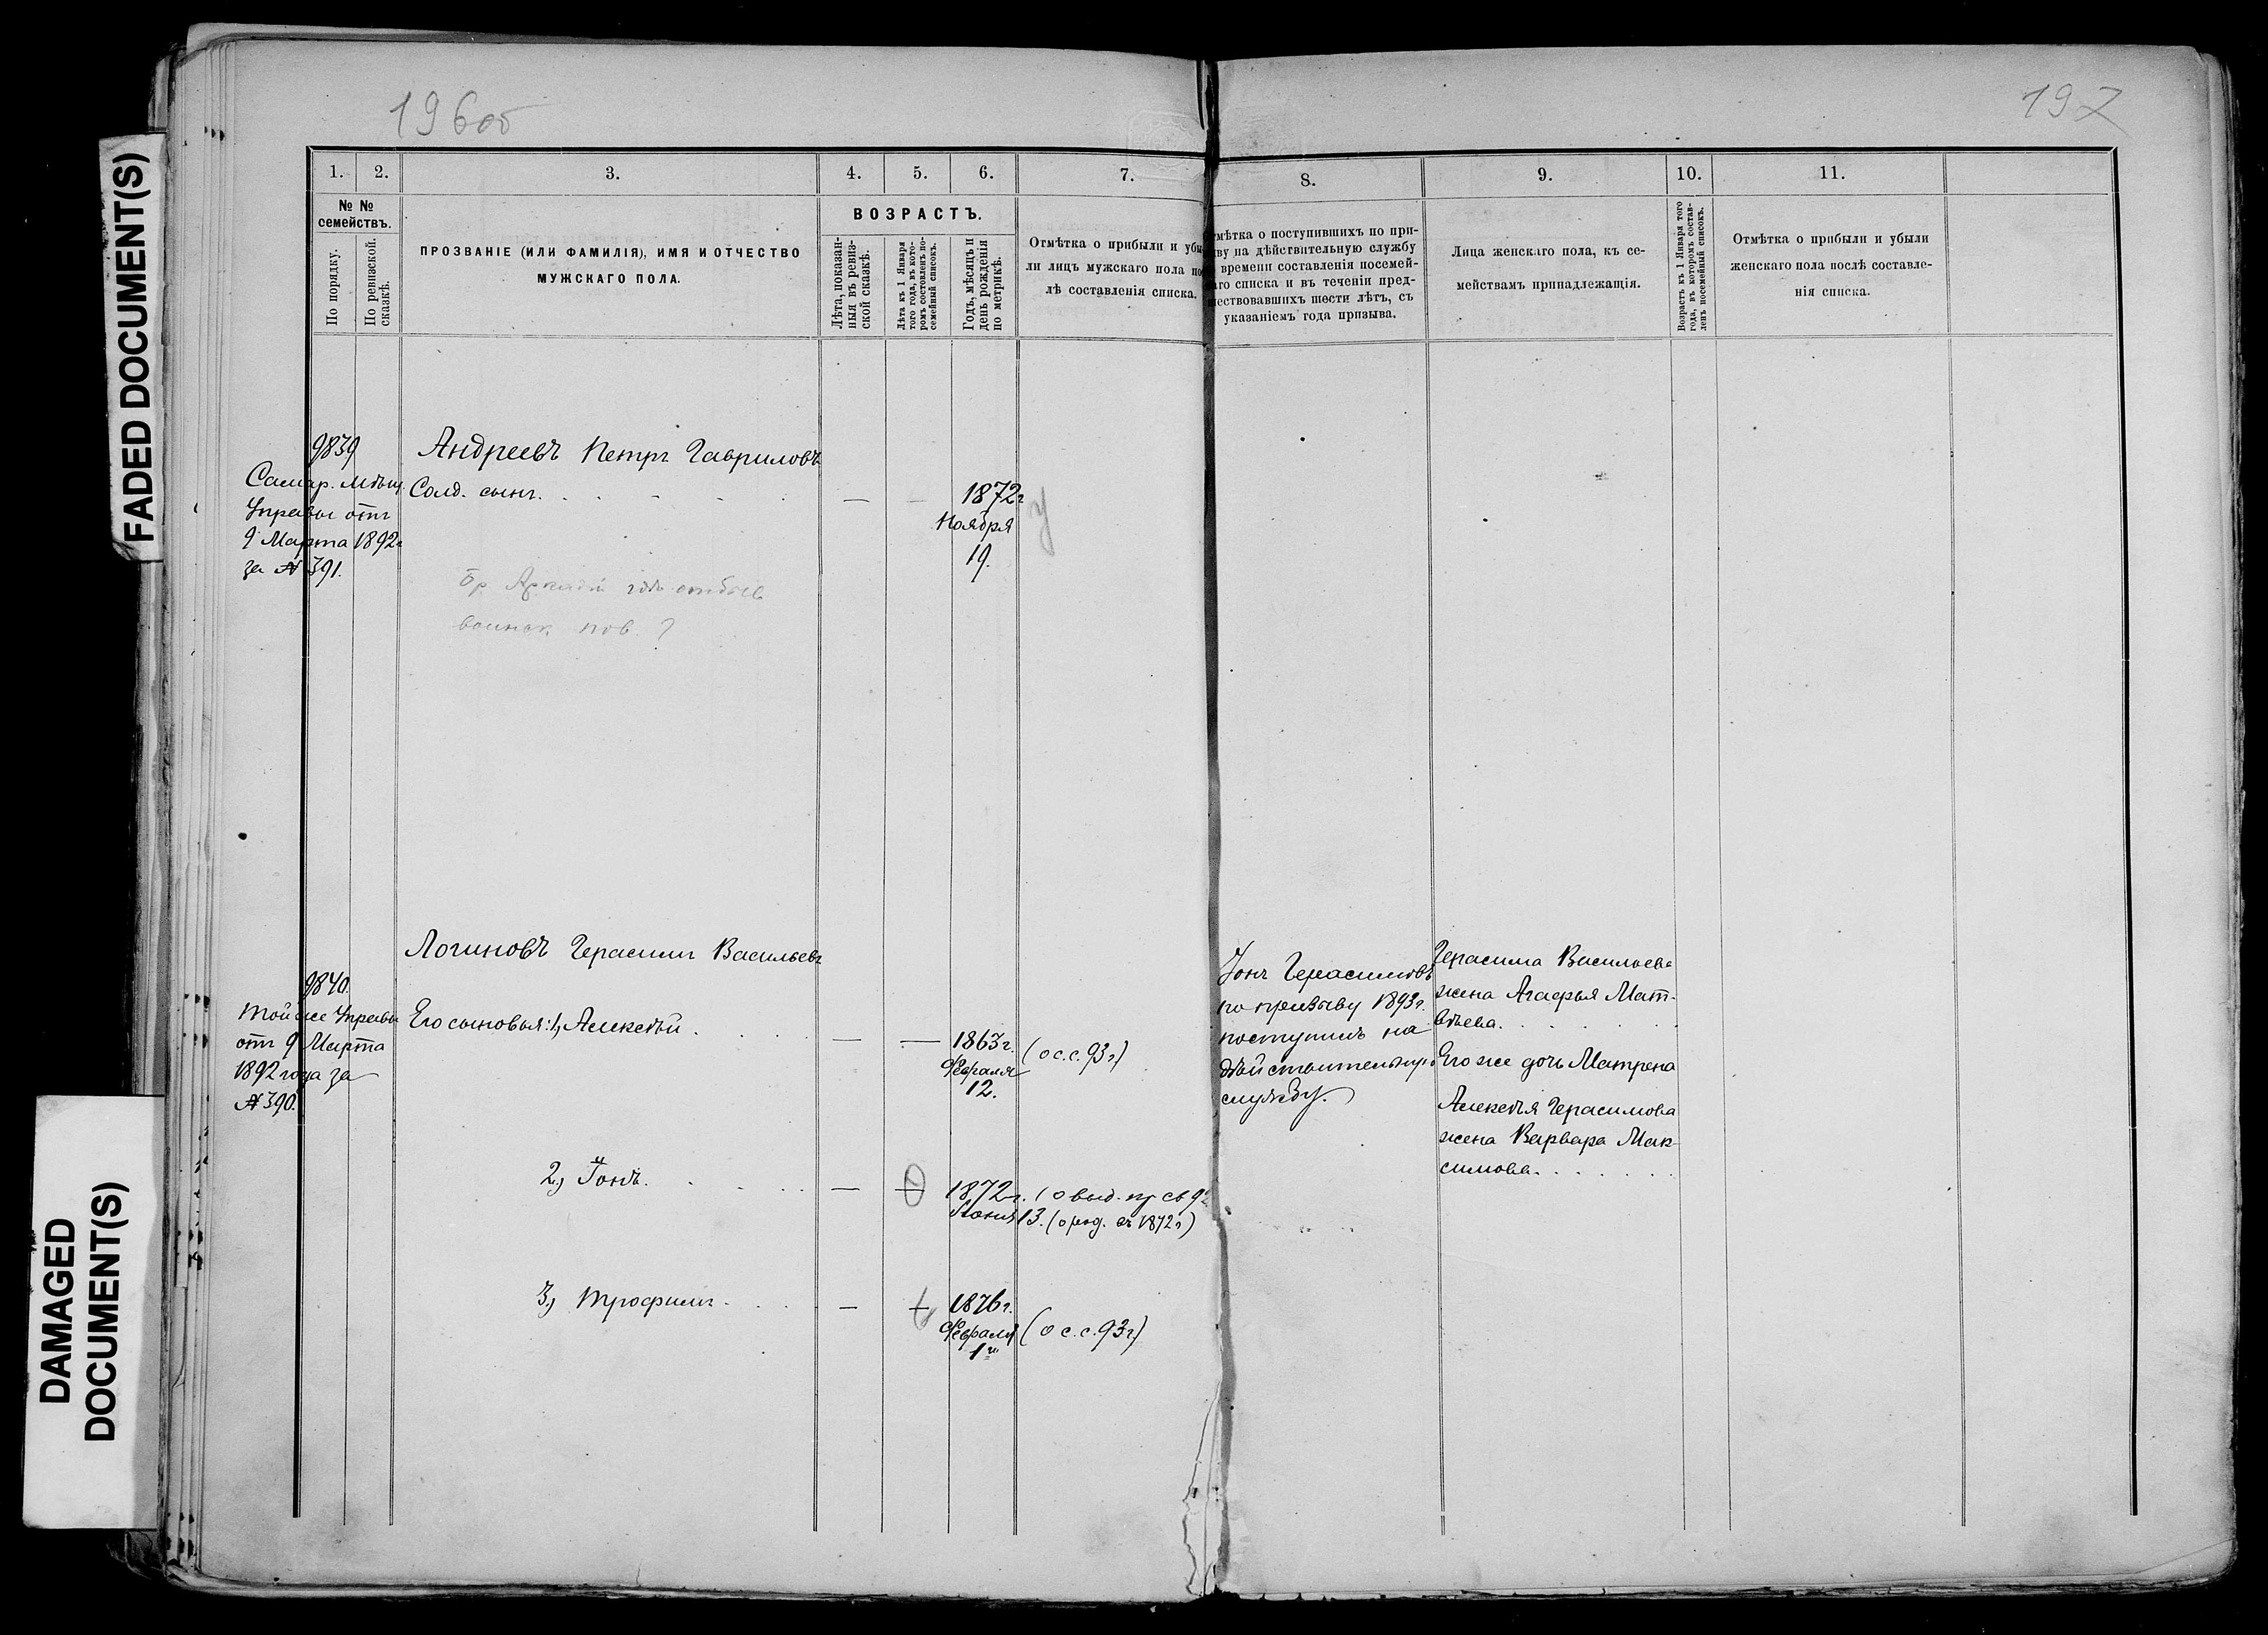 FADED DOCUMENT(S)
DAMAGED
DOCUMENT(S)
196об
197
1.
2.
3.
4.
5.
6.
7.
8.
9.
10.
11.
№ №
семействъ.
По порядку.
По ревизской
сказкѣ.
ПРОЗВАНІЕ (ИЛИ ФАМИЛІЯ), ИМЯ И ОТЧЕСТВО
МУЖСКАГО ПОЛА.
ВОЗРАСТЪ.
Лѣта, показан-
ныя въ ревиз-
ской сказкѣ.
Лѣта къ 1 Января
того года, въ кото-
ромъ составленъ по-
семейный списокъ.
Годъ, мѣсяцъ и
день рожденія
по метрикѣ.
Отмѣтка о прибыли и убы-
ли лицъ мужскаго пола по
лѣ составленія списка.
мѣтка о поступившихъ по при-
ву на дѣйствительную службу
времени составленія посемей-
аго списка и въ теченіи пред-
ествовавшихъ шести лѣтъ, съ
указаніемъ года призыва.
Лица женскаго пола, къ се-
мействамъ принадлежащія.
Возрастъ къ 1 Января того
года, въ которомъ состав-
ленъ посемейный списокъ.
Отмѣтка о прибыли и убыли
женскаго пола послѣ составле-
нія списка.
9839
Самар. Мѣщ.
Управы отъ
9 Марта 1892г
за № 391.
Андреевъ Петръ Гавриловъ
Солд. сынъ.
1872г
Ноября
19.
У
Бр Аркадій гдѣ отбыв
воинск. пов. ?
9840.
Той же Управы
отъ 9 Марта
1892 года за
№ 390.
Логиновъ Герасимъ Васильевъ
Его сыновья: 1, Алексѣй
1863г.
Февраля
12.
(о с.с. 93г)
2, Іонъ
1872г. (о выд. пр св 92
13. (о род. съ 1872г)
3, Трофимъ
1876г.
Февраля
1го
(о с.с. 93г)
Іонъ Герасимовъ
по призыву 1893г.
поступилъ на
дѣйствительную
службу.
Герасима Васильева
жена Агафья Мат-
вѣева.
Его же дочь Матрена
Алексѣя Герасимова
жена Варвара Мак-
симова.